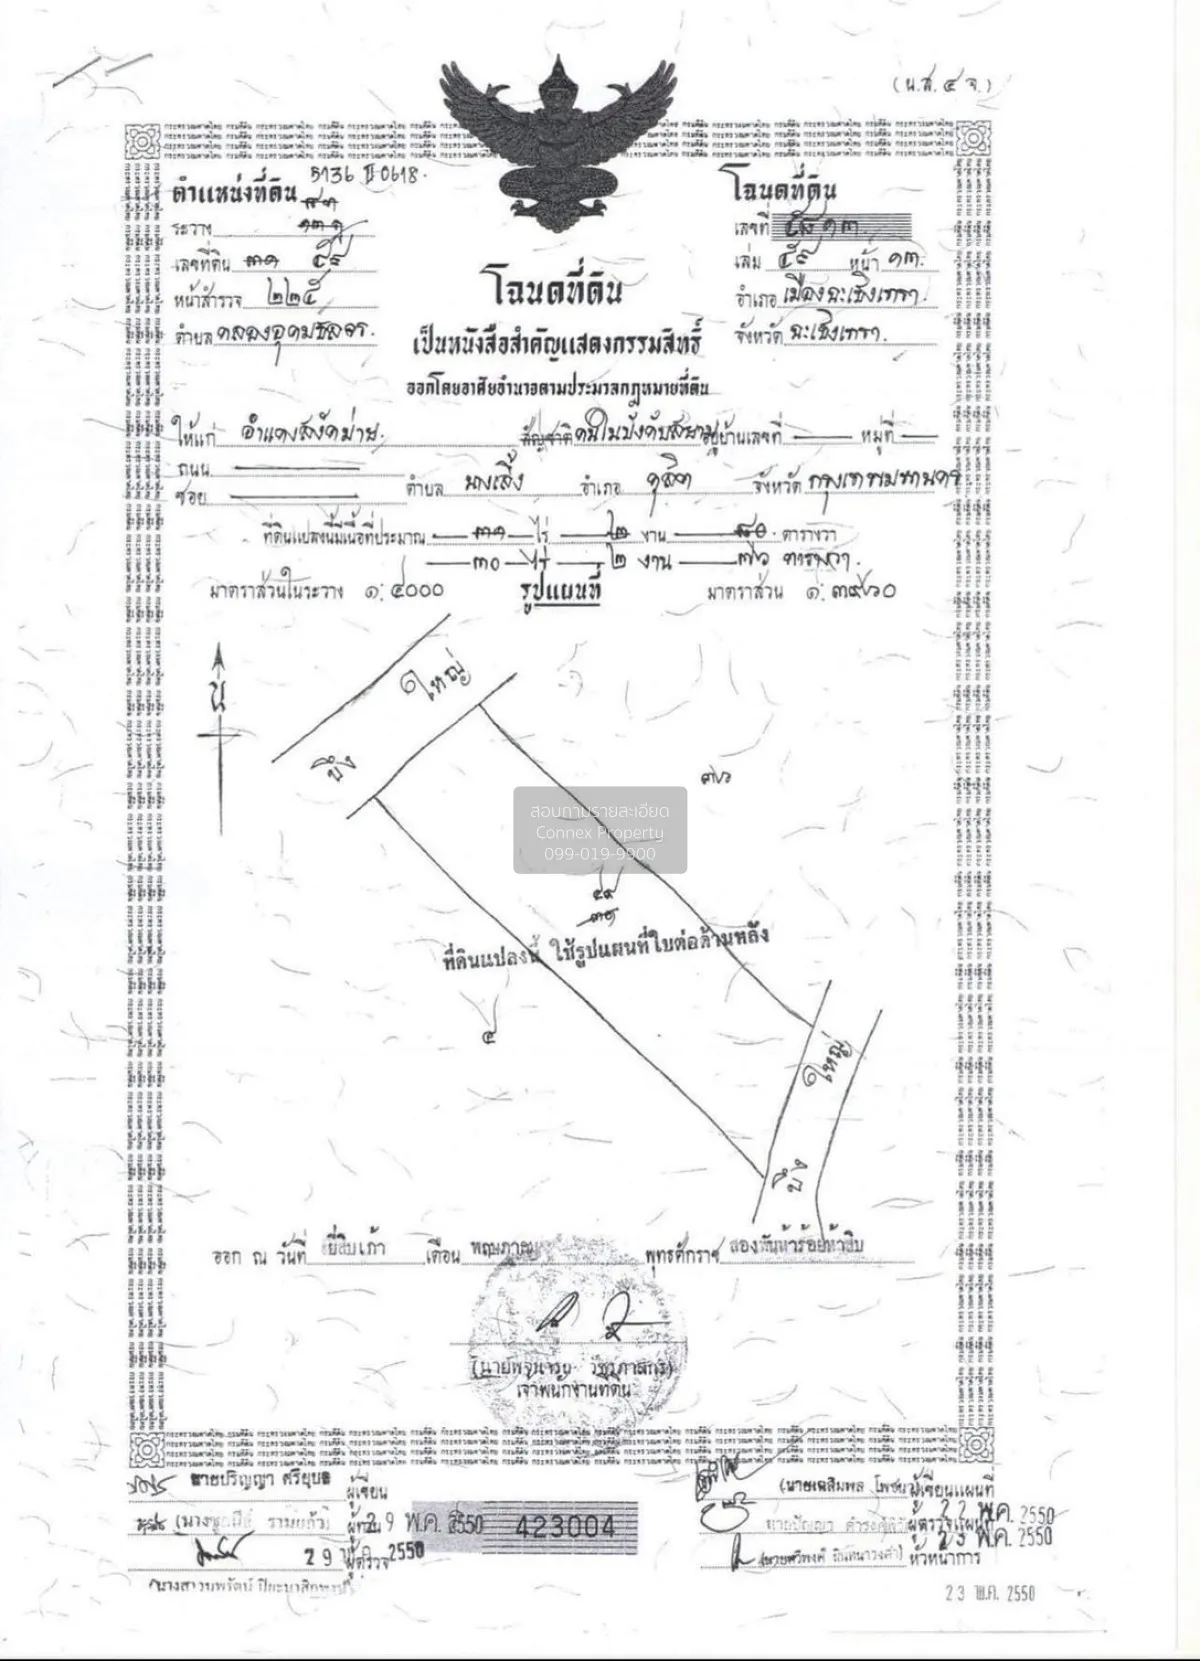 (น.ส. ๔ จ.)
ตำแหน่งที่ดิน
5136 II 0618.
ระวาง
เลขที่ดิน ๓๑ ๕๙
หน้าสำรวจ ๒๒๕
ตำบล คลองอุดมชลจร.
โฉนดที่ดิน
เลขที่
เล่ม ๕๙ หน้า ๑๓.
อำเภอ เมืองฉะเชิงเทรา.
จังหวัด ฉะเชิงเทรา.
โฉนดที่ดิน
เป็นหนังสือสำคัญแสดงกรรมสิทธิ์
ออกโดยอาศัยอำนาจตามประมวลกฎหมายที่ดิน
ให้แก่ อำแดงสงัดม่าย. สัญชาติ คนในบังคับสยาม อยู่บ้านเลขที่ — หมู่ที่ —
ถนน —
ซอย — ตำบล นางเลิ้ง อำเภอ ดุสิต จังหวัด กรุงเทพมหานคร
ที่ดินแปลงนี้มีเนื้อที่ประมาณ ๓๑ ไร่ ๒ งาน ๘๐. ตารางวา
๓๐ ไร่ ๒ งาน ๗๖ ตารางวา.
มาตราส่วนในระวาง ๑:๔๐๐๐ รูปแผนที่ มาตราส่วน ๑:๓๙๖๐
น
บึง ใหญ่
๓๖
สอบถามรายละเอียด
Connex Property
099-019-9900
๕๙
๓๑
ที่ดินแปลงนี้ ให้รูปแผนที่ใบต่อด้านหลัง
๔
บึง ใหญ่
ออก ณ วันที่ ยี่สิบเก้า เดือน พฤษภาคม พุทธศักราช สองพันห้าร้อยห้าสิบ
เจ้าพนักงานที่ดิน
นายปริญญา ศรียุบล ผู้เขียน
ผู้ทาน 29 พ.ค. 2550
ผู้ตรวจ
423004
(นายเฉลิมพล ผู้เขียนแผนที่
22 พ.ค. 2550
ผู้ตรวจแผนที่
23 พ.ค. 2550
หัวหน้าการ
23 พ.ค. 2550